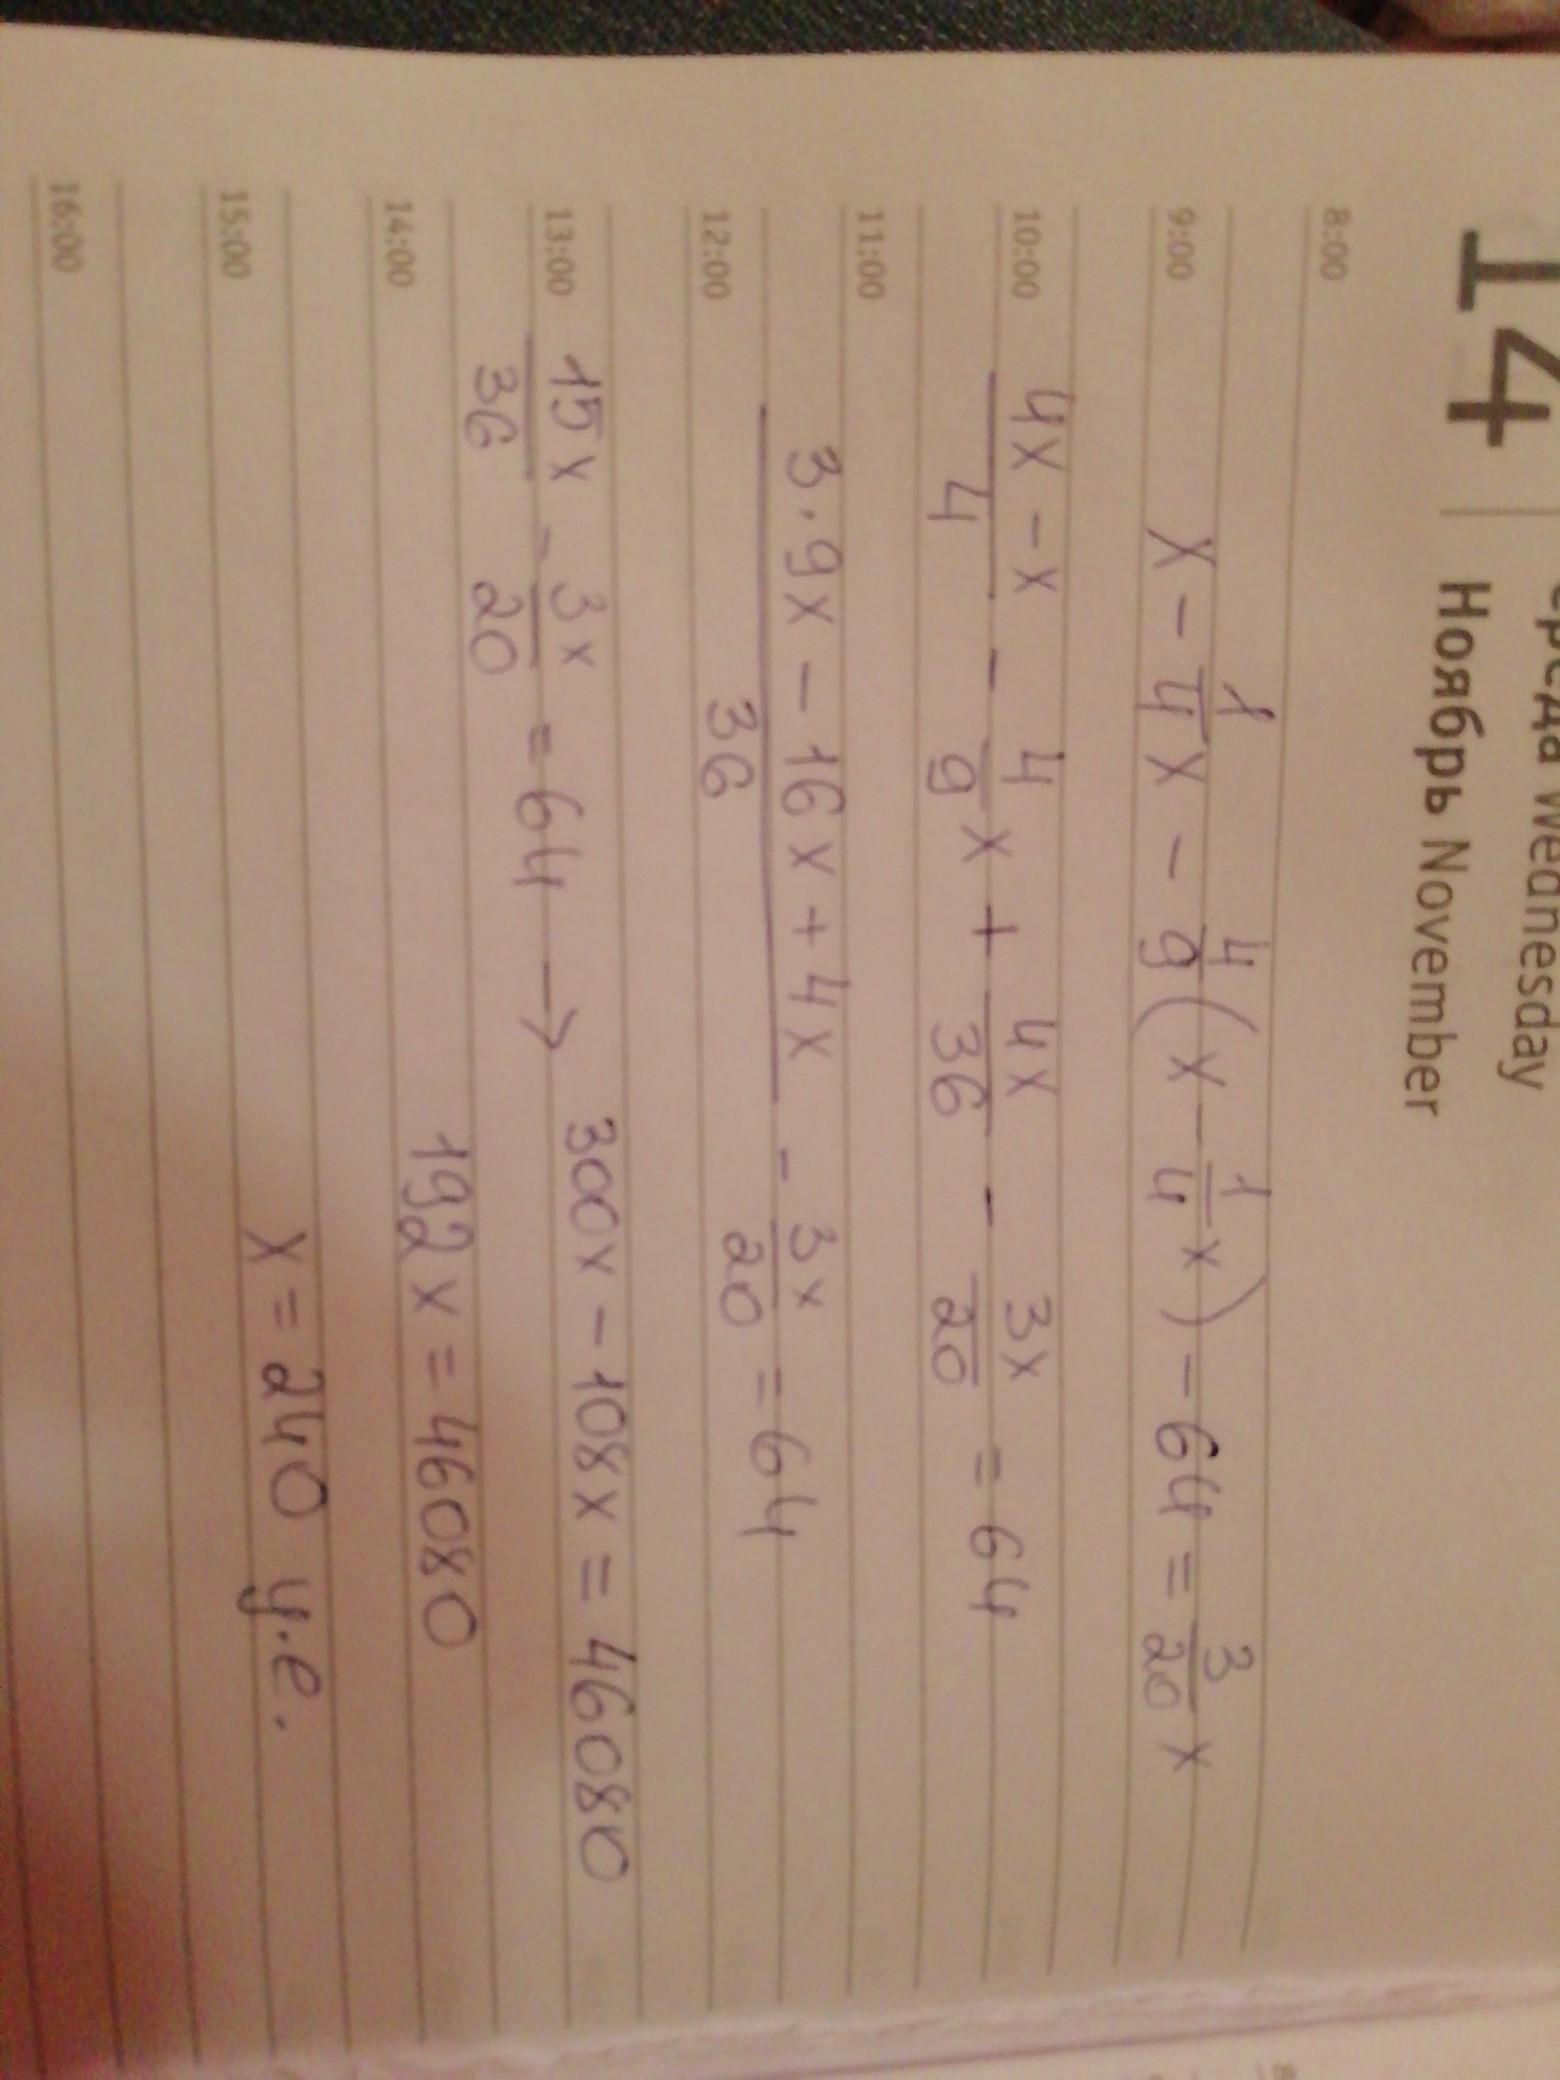 14
среда Wednesday
Ноябрь November
8:00
9:00 x - 1/4 x - 4/9 (x - 1/4 x) - 64 = 3/20 x
10:00 (4x - x)/4 - 4/9 x + 4x/36 - 3x/20 = 64
11:00
(3·9x - 16x + 4x)/36 - 3x/20 = 64
12:00
13:00 15x/36 - 3x/20 = 64 → 300x - 108x = 46080
14:00 192x = 46080
15:00 x = 240 y.e.
16:00